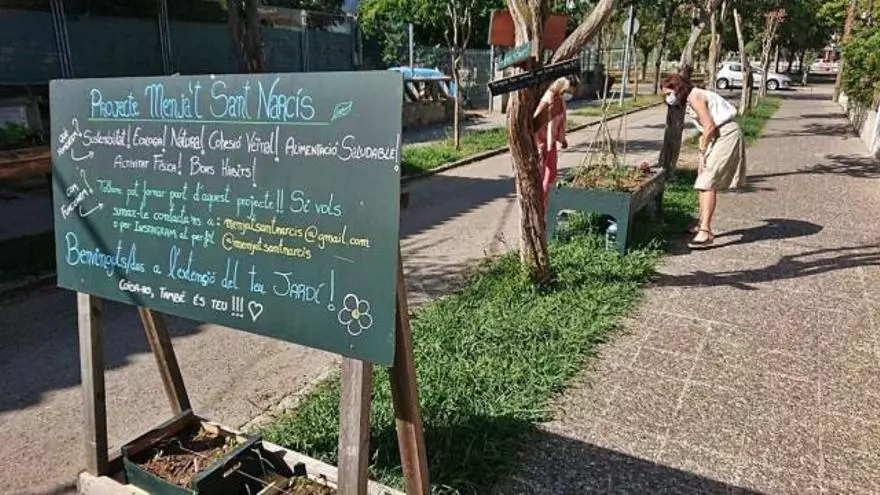 Projecte Menja't Sant Narcís
QUÈ ?
Sostenibilitat! Ecologia! Natural! Cohesió Veïnal! Alimentació Saludable!
Activitat Física! Bons Hàbits!
COM
FUNCIONA?
Tothom pot formar part d'aquest projecte!! Si vols
sumar-te contacta'ns a: menjatsantnarcis@gmail.com
o per INSTAGRAM al perfil @menjatsantnarcis
Benvinguts/des a l'extensió del teu Jardí!
Cuida-ho, també és teu!!!